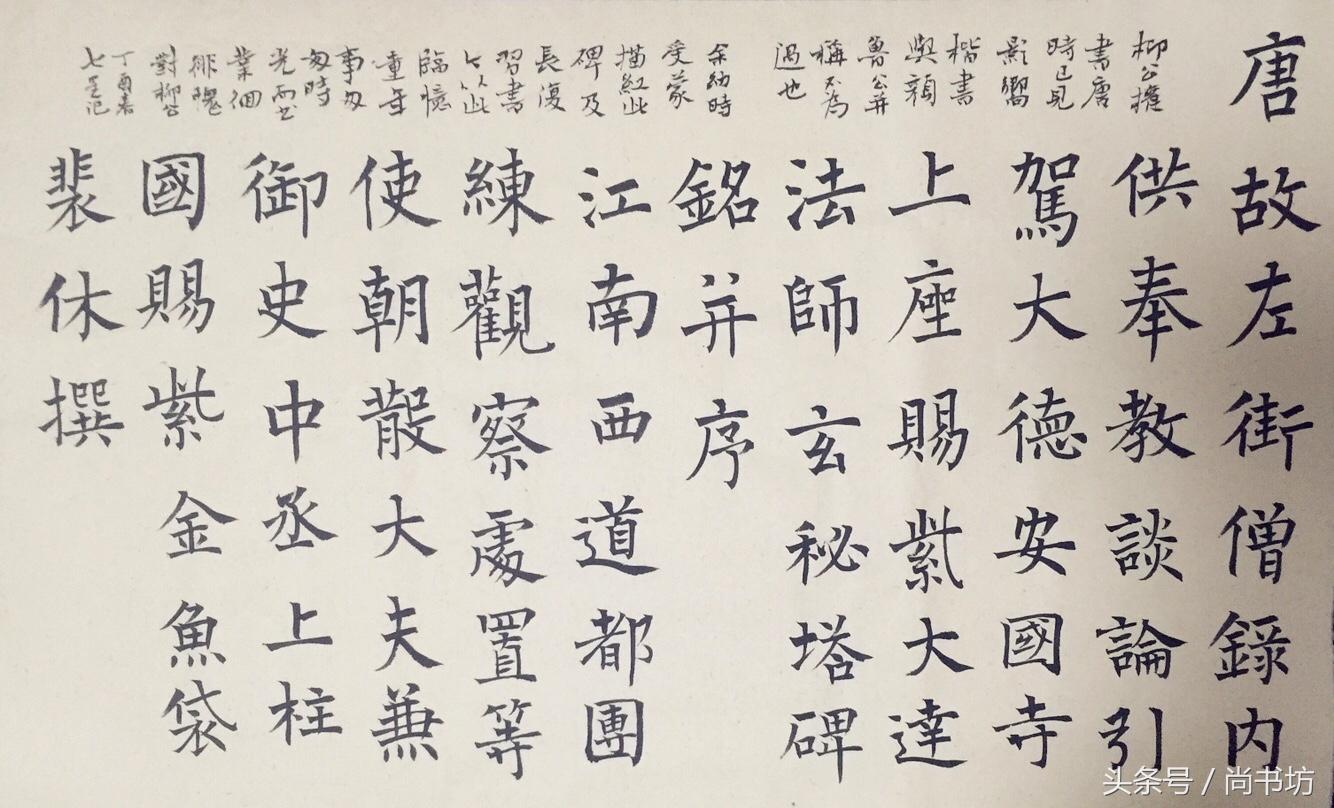 唐故左街僧錄内
供奉教談論引
駕大德安國寺
上座賜紫大達
法師玄秘塔碑
銘并序
江南西道都團
練觀察處置等
使朝散大夫兼
御史中丞上柱
國賜紫金魚袋
裴休撰
柳公權
書唐
時已見
影響
楷書
與顏
魯公并
稱不為
過也
余幼時
受蒙
描紅此
碑及
長復
習書
以此
臨憶
童年
事匆
匆時
光而書
業徊
徘愧
對柳公
丁酉春
七記
头条号 / 尚书坊